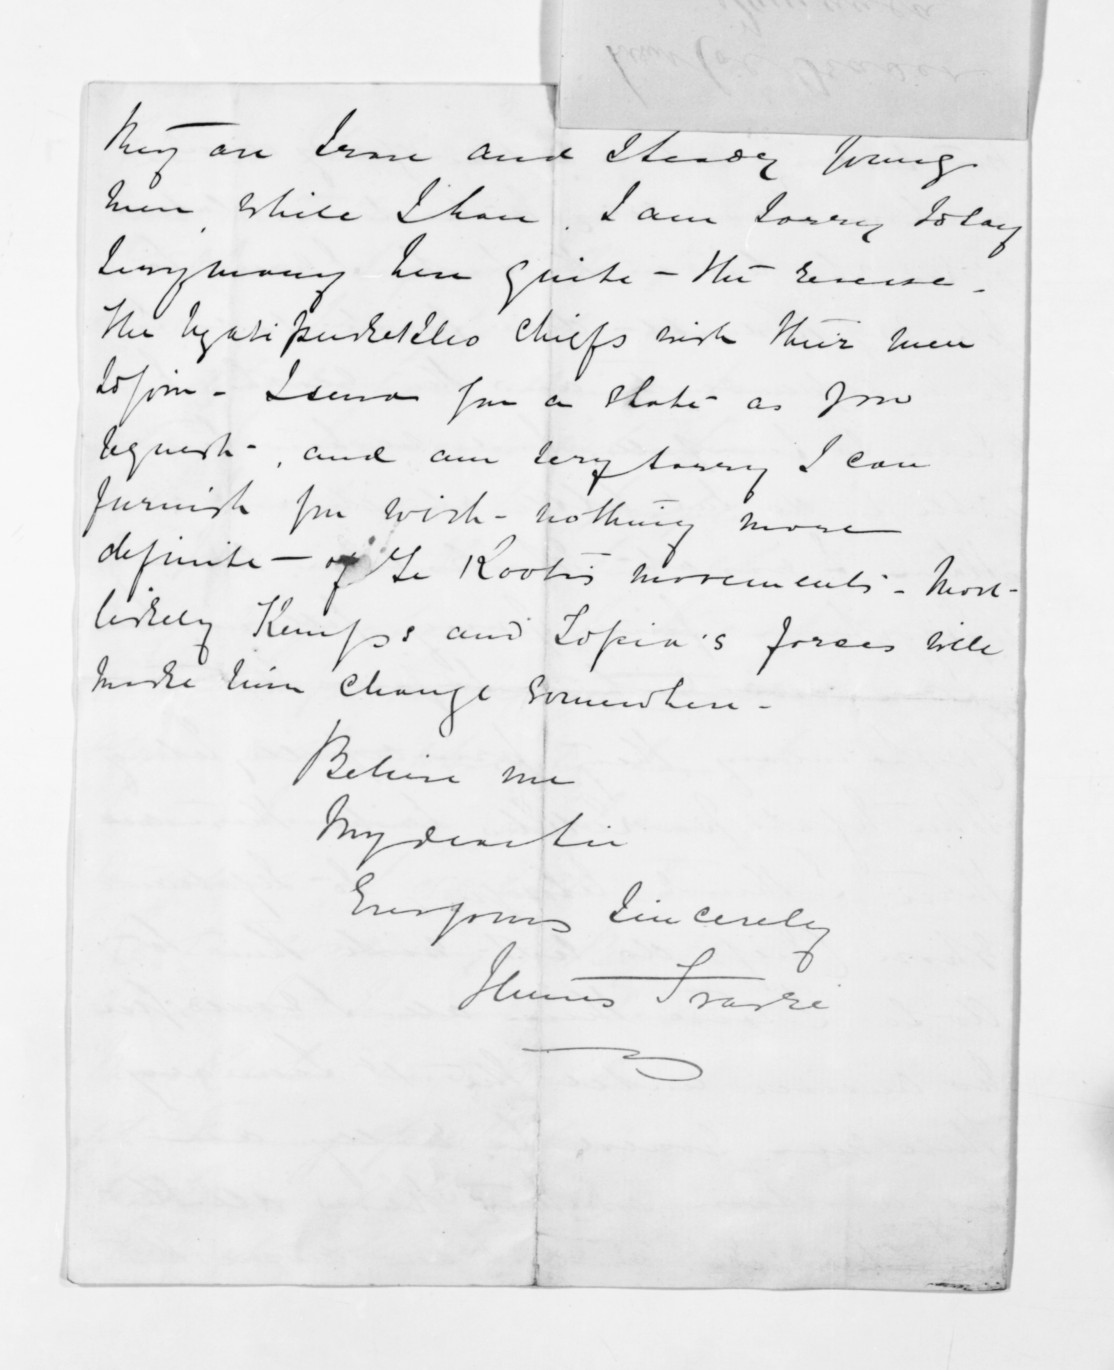 They are brave and steady young
men, while I have, I am sorry to say
very many here quite - the reverse.
The Ngatipukeko chiefs wish their men
to join - I send you a as you
request -, and am very sorry I can
furnish you with - nothing more
definite - of Te Kooti's movements - Most
likely Kemps and Topia's forces will
make him change somewhere -
Believe me
My dear Sir
Ever yours Sincerely